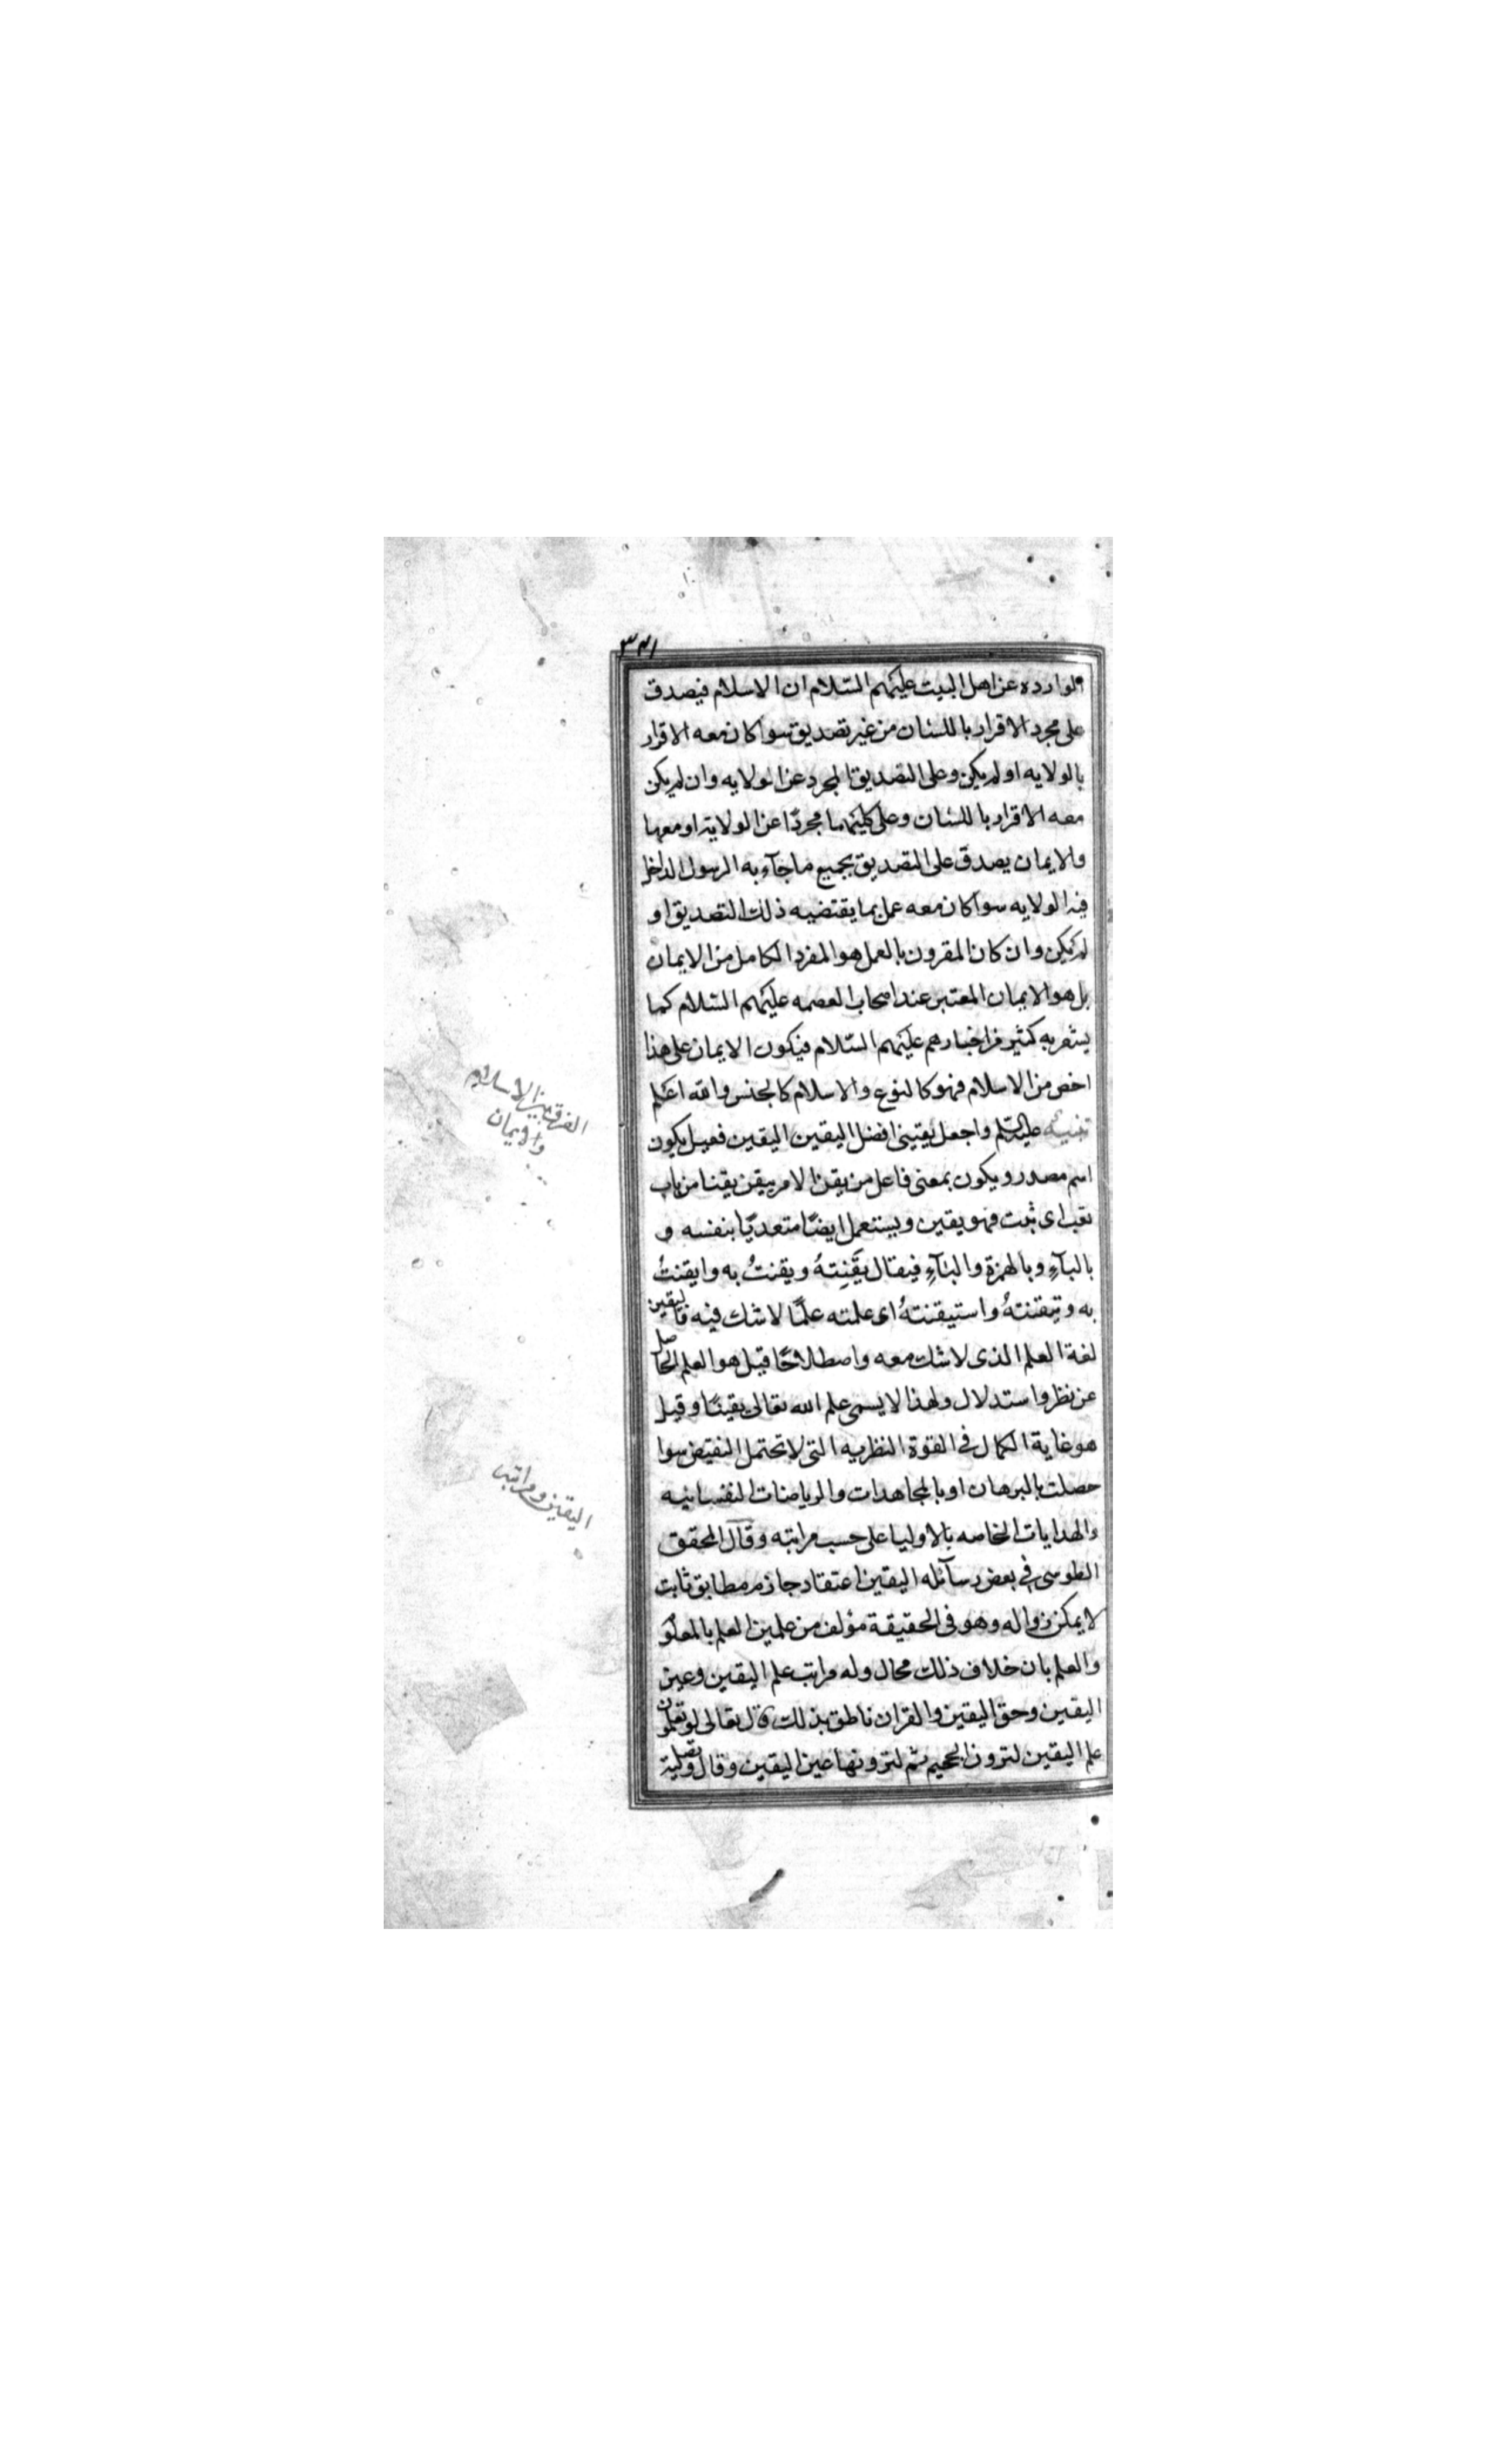 ٣٧١
الوارده عن اهل البيت عليهم السّلام ان الاسلام فيصدق
على مجرد الاقرار باللسان من غير تصديق سوا كان معه الاقرار
بالولايه او لم يكن وعلى التصديق المجرد عن الولايه وان لم يكن
معه الاقرار باللسان وعلى كليهما مجردًا عن الولاية او معها
والايمان يصدق على التصديق بجميع ما جآء به الرسول الداخل
فيه الولايه سوا كان معه عمل بما يقتضيه ذلك التصديق او
لم يكن وان كان المقرون بالعمل هو المفرد الكامل من الايمان
بل هو الايمان المعتبر عند اصحاب العصمه عليهم السّلام كما
يشعر به كثير من اخبارهم عليهم السّلام فيكون الايمان على هذا
اخص من الاسلام فهو كالنوع والاسلام كالجنس والله اعلم
عليه السّلم واجعل يقيني افضل اليقين اليقين فعيل يكون
اسم مصدر ويكون بمعنى فاعل من يقن الامر ييقن يقنا من باب
تعب اى ثبت فهو يقين ويستعمل ايضًا متعديًا بنفسه و
بالبآءِ وبالهمزة والبآءِ فيقال يَقَنِتهُ ويقنتُ به وايقنتُ
به وتيقنتهُ واستيقنتهُ اى علمته علمًا لا شك فيه فاليقين
لغة العلم الذى لا شك معه واصطلاحًا قيل هو العلم الحاصل
عن نظر واستدلال ولهذا لا يسمى علم الله تعالى يقينًا وقيل
هو غاية الكمال فى القوة النظريه التى لا تحتمل النقيض سوا
حصلت بالبرهان او بالمجاهدات والرياضات النفسانيه
والهدايات الخاصه بالاوليا على حسب مراتبه وقال المحقق
الطوسى فى بعض رسآئله اليقين اعتقاد جازم مطابق ثابت
لا يمكن زواله وهو فى الحقيقة مؤلف من علمين العلم بالمعلو
والعلم بان خلاف ذلك محال وله مراتب علم اليقين وعين
اليقين وحق اليقين والقران ناطق بذلك قال تعالى لو تعلمون
علم اليقين لترون الجحيم ثم لترونها عين اليقين وقال وتصلية
الفرق بين الاسلام
والايمان
اليقين ومراتبه